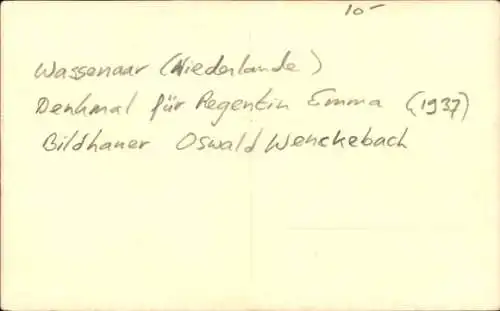 10-
Wassenaar (Niederlande)
Denkmal für Regentin Emma (1937)
Bildhauer Oswald Wenckebach